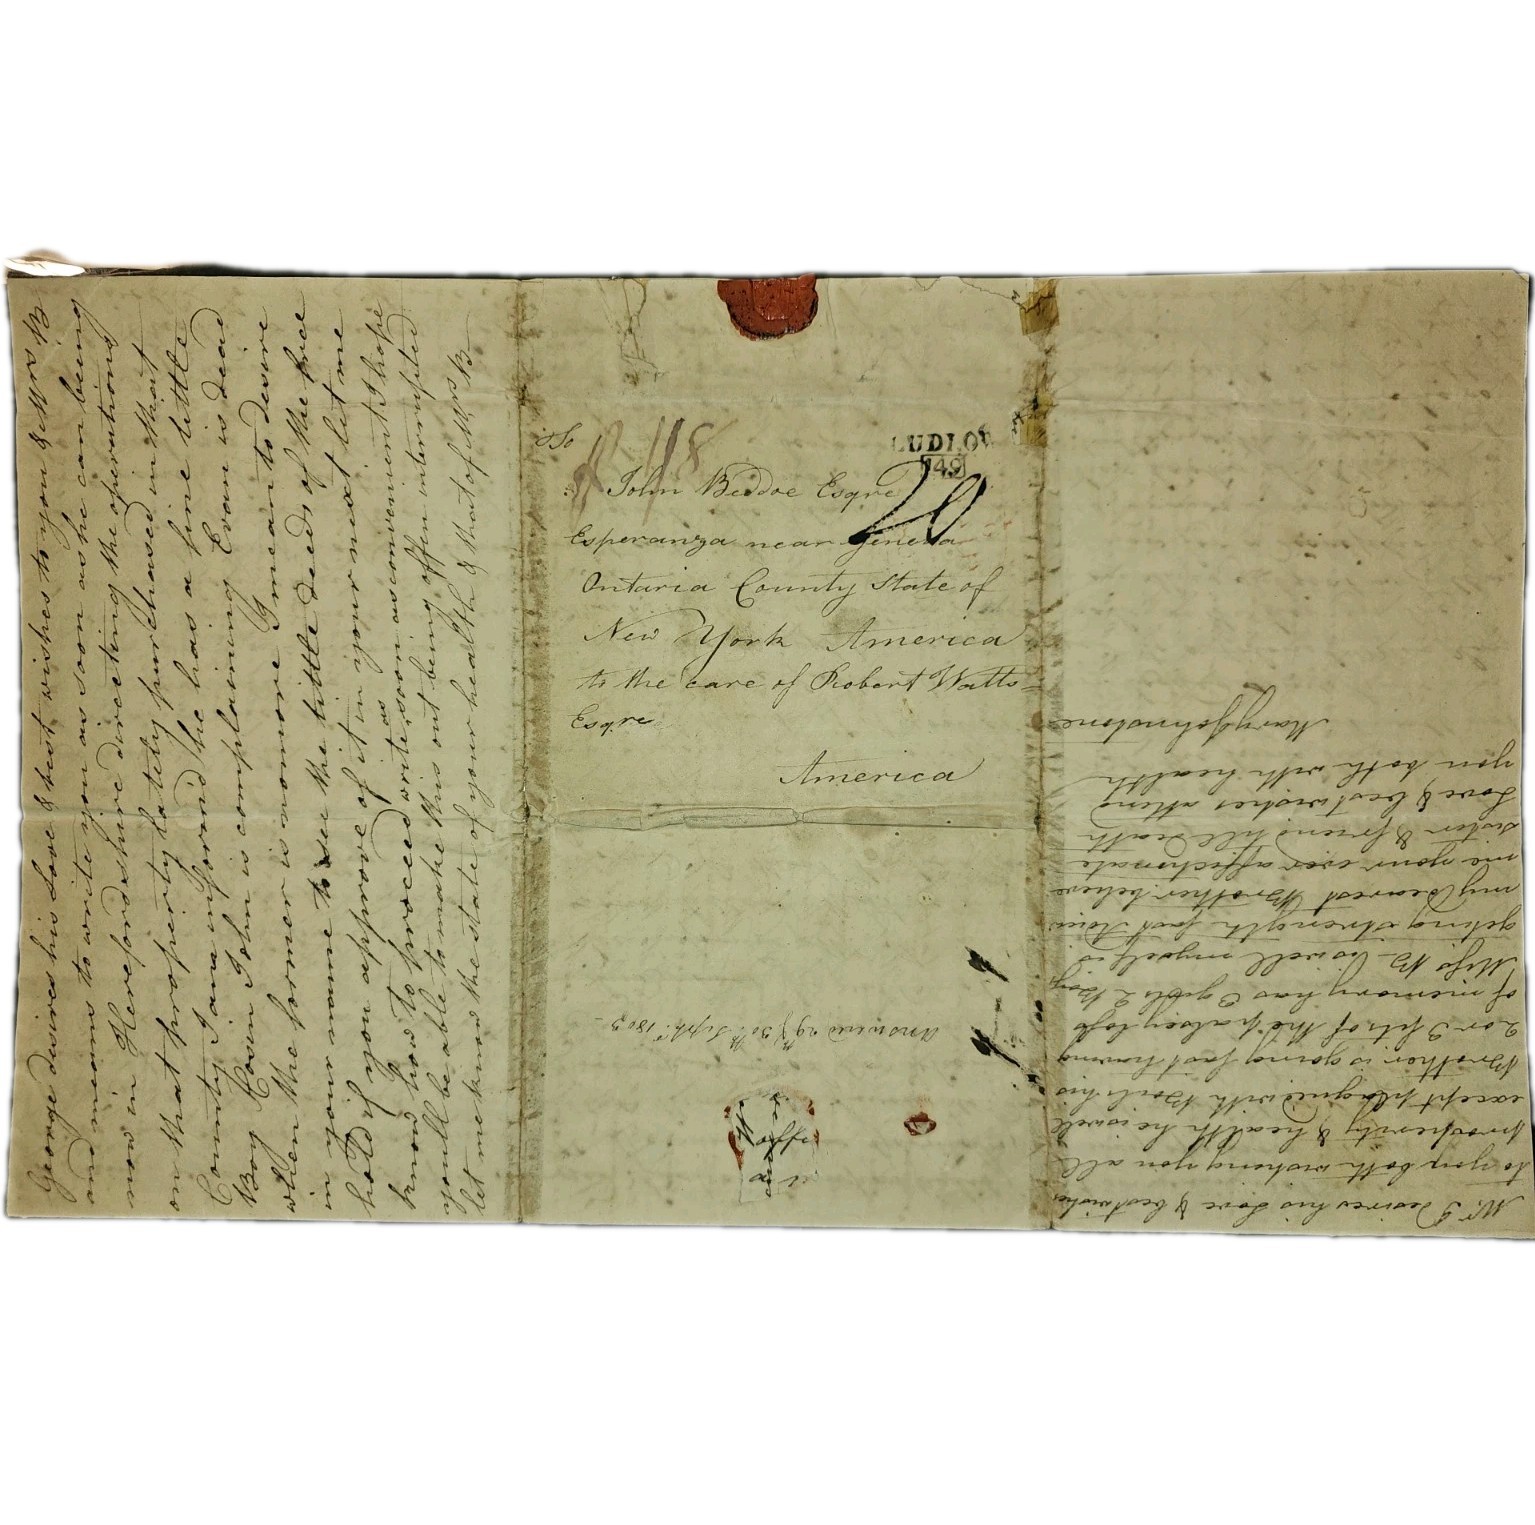 George desires his Love & best wishes to you & Mrs B
and means to write you as soon as he can being
now in Herefordshire directing the operations
on that property lately purchased in that
County, I am inform'd he has a fine little
Boy Cosin John is complaining Evan is dead
when the former is no more I mean to desire
in your name to see the tittle deeds of the free
hold if you approve of it in your next let me
know how to proceed write soon as convenient I hope
as
youll be able to make this out being often interrupted
let me know the state of your health & that of Mrs B
To
118
LUDLOW
149
20
John Beddoe Esqre
Esperanza near Geneva
Ontaria County State of
New York America
to the care of Robert Watts
Esqre
America
answered 29th & 30th Septr. 1803
Mr. J desires his Love & best wishes
to you both wishing you all
prosperity & health he is well
except plagued with Boils his
Brother is going fast having
2 or 3 fits of the palsey loss
of memory has 2 Boys
Mrs B is well myself is
geting strength fast Now
my Dearest Brother believe
me your ever affectionate
sister & friend till Death
Love & best wishes attend
you both with health
Mary Johnstone